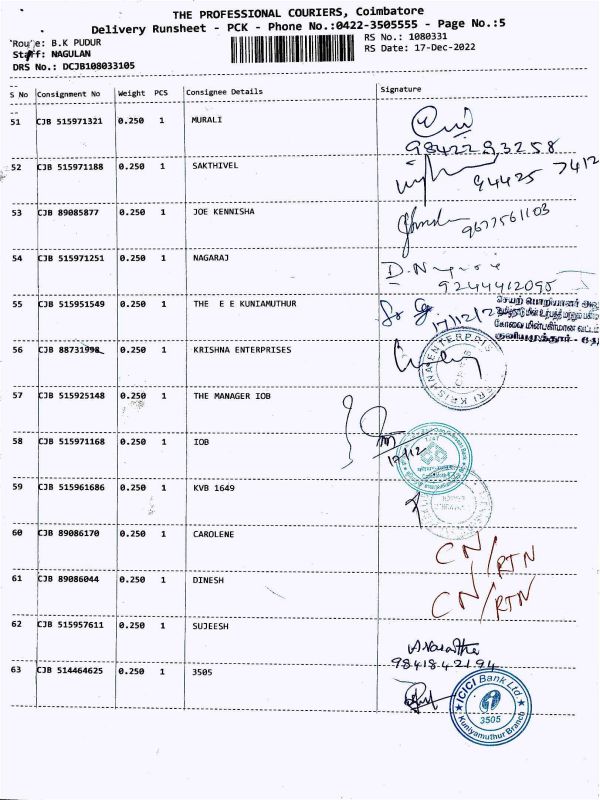 THE PROFESSIONAL COURIERS, Coimbatore
Delivery Runsheet - PCK - Phone No.:0422-3505555 - Page No.:5
Route: B.K PUDUR
RS No.: 1080331
Staff: NAGULAN
RS Date: 17-Dec-2022
DRS No.: DCJB108033105
S No Consignment No Weight PCS Consignee Details Signature
51 CJB 515971321 0.250 1 MURALI
9842293258
52 CJB 515971188 0.250 1 SAKTHIVEL
94425 7412
53 CJB 89085877 0.250 1 JOE KENNISHA
9677561103
54 CJB 515971251 0.250 1 NAGARAJ
9244412095
55 CJB 515951549 0.250 1 THE E E KUNIAMUTHUR
17/12/22
செயற் பொறியாளர்
56 CJB 88731998 0.250 1 KRISHNA ENTERPRISES
SRI KRISHNA ENTERPRISES
57 CJB 515925148 0.250 1 THE MANAGER IOB
58 CJB 515971168 0.250 1 IOB
17/12
59 CJB 515961686 0.250 1 KVB 1649
60 CJB 89086170 0.250 1 CAROLENE
CN/RTN
61 CJB 89086044 0.250 1 DINESH
CN/RTN
62 CJB 515957611 0.250 1 SUJEESH
9841842194
63 CJB 514464625 0.250 1 3505
ICICI Bank Ltd
3505
Kuniyamuthur Branch